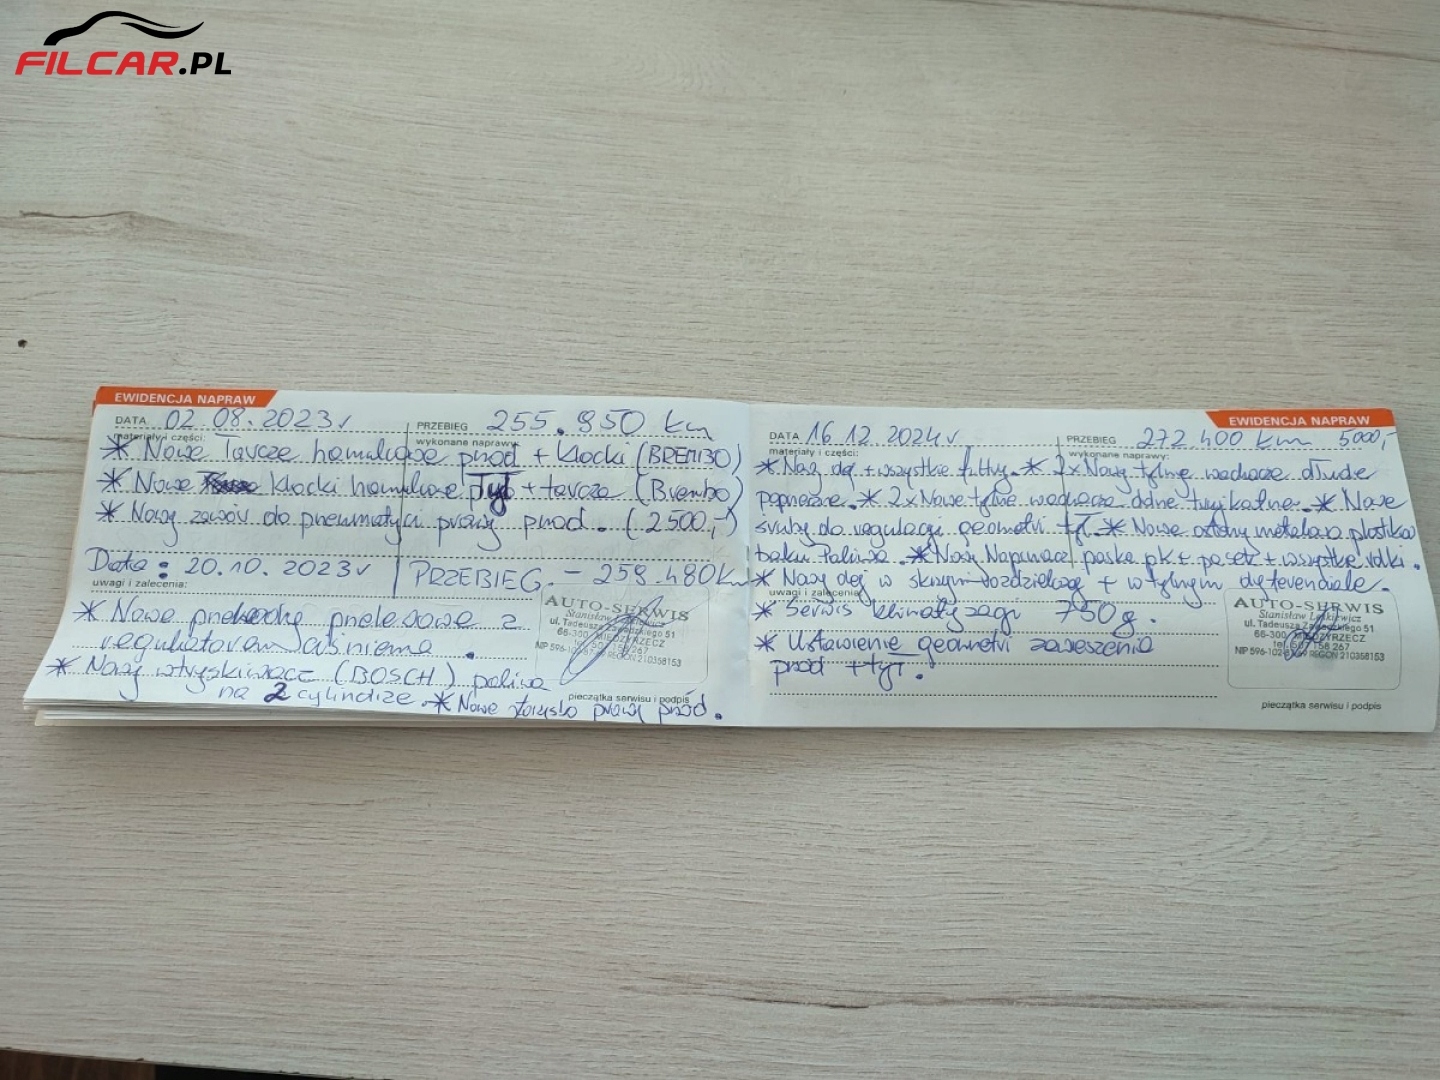 FILCAR.PL
EWIDENCJA NAPRAW
DATA 02.08.2023r PRZEBIEG 255.850 km
materiały i części: wykonane naprawy:
* Nowe Tarcze hamulcowe przód + klocki (BREMBO)
* Nowe klocki hamulcowe Tył + tarcze (Brembo)
* Nowy zawór do pneumatyci prawy przód. (2500,-)
Data: 20.10.2023r PRZEBIEG. - 258.480km
uwagi i zalecenia:
* Nowe przekładnie przelewowe z
regulatorem ciśnienia.
* Nowy wtryskiwacz (BOSCH) paliwa
na 2 cylindrze. * Nowe łożysko prawy przód.
AUTO-SERWIS
ul. Tadeusza 51
66-300 MIĘDZYRZECZ
REGON 210358153
pieczątka serwisu i podpis
EWIDENCJA NAPRAW
DATA 16.12.2024r PRZEBIEG 272.400 km 5000,-
materiały i części: wykonane naprawy:
* Nowy olej + wszystkie filtry. * 2x Nowy tylne wachacze długie
poprzeczne. * 2x Nowe tylne wachacze dolne * Nowe
śruby do regulacji geometri tył. * Nowe osłony metalowa plastika
baku Paliwa. * Nowy Napinacz paska pk + pasek + wszystkie rolki.
* Nowy olej w skrzyni rozdzielczej + w tylnym dyferenciale.
uwagi i zalecenia:
* Serwis klimatyzacji 750g.
* Ustawienie geometri zawieszenia
przód + tył.
AUTO-SERWIS
Stanisław
ul. Tadeusza 51
66-300 MIĘDZYRZECZ
REGON 210358153
pieczątka serwisu i podpis